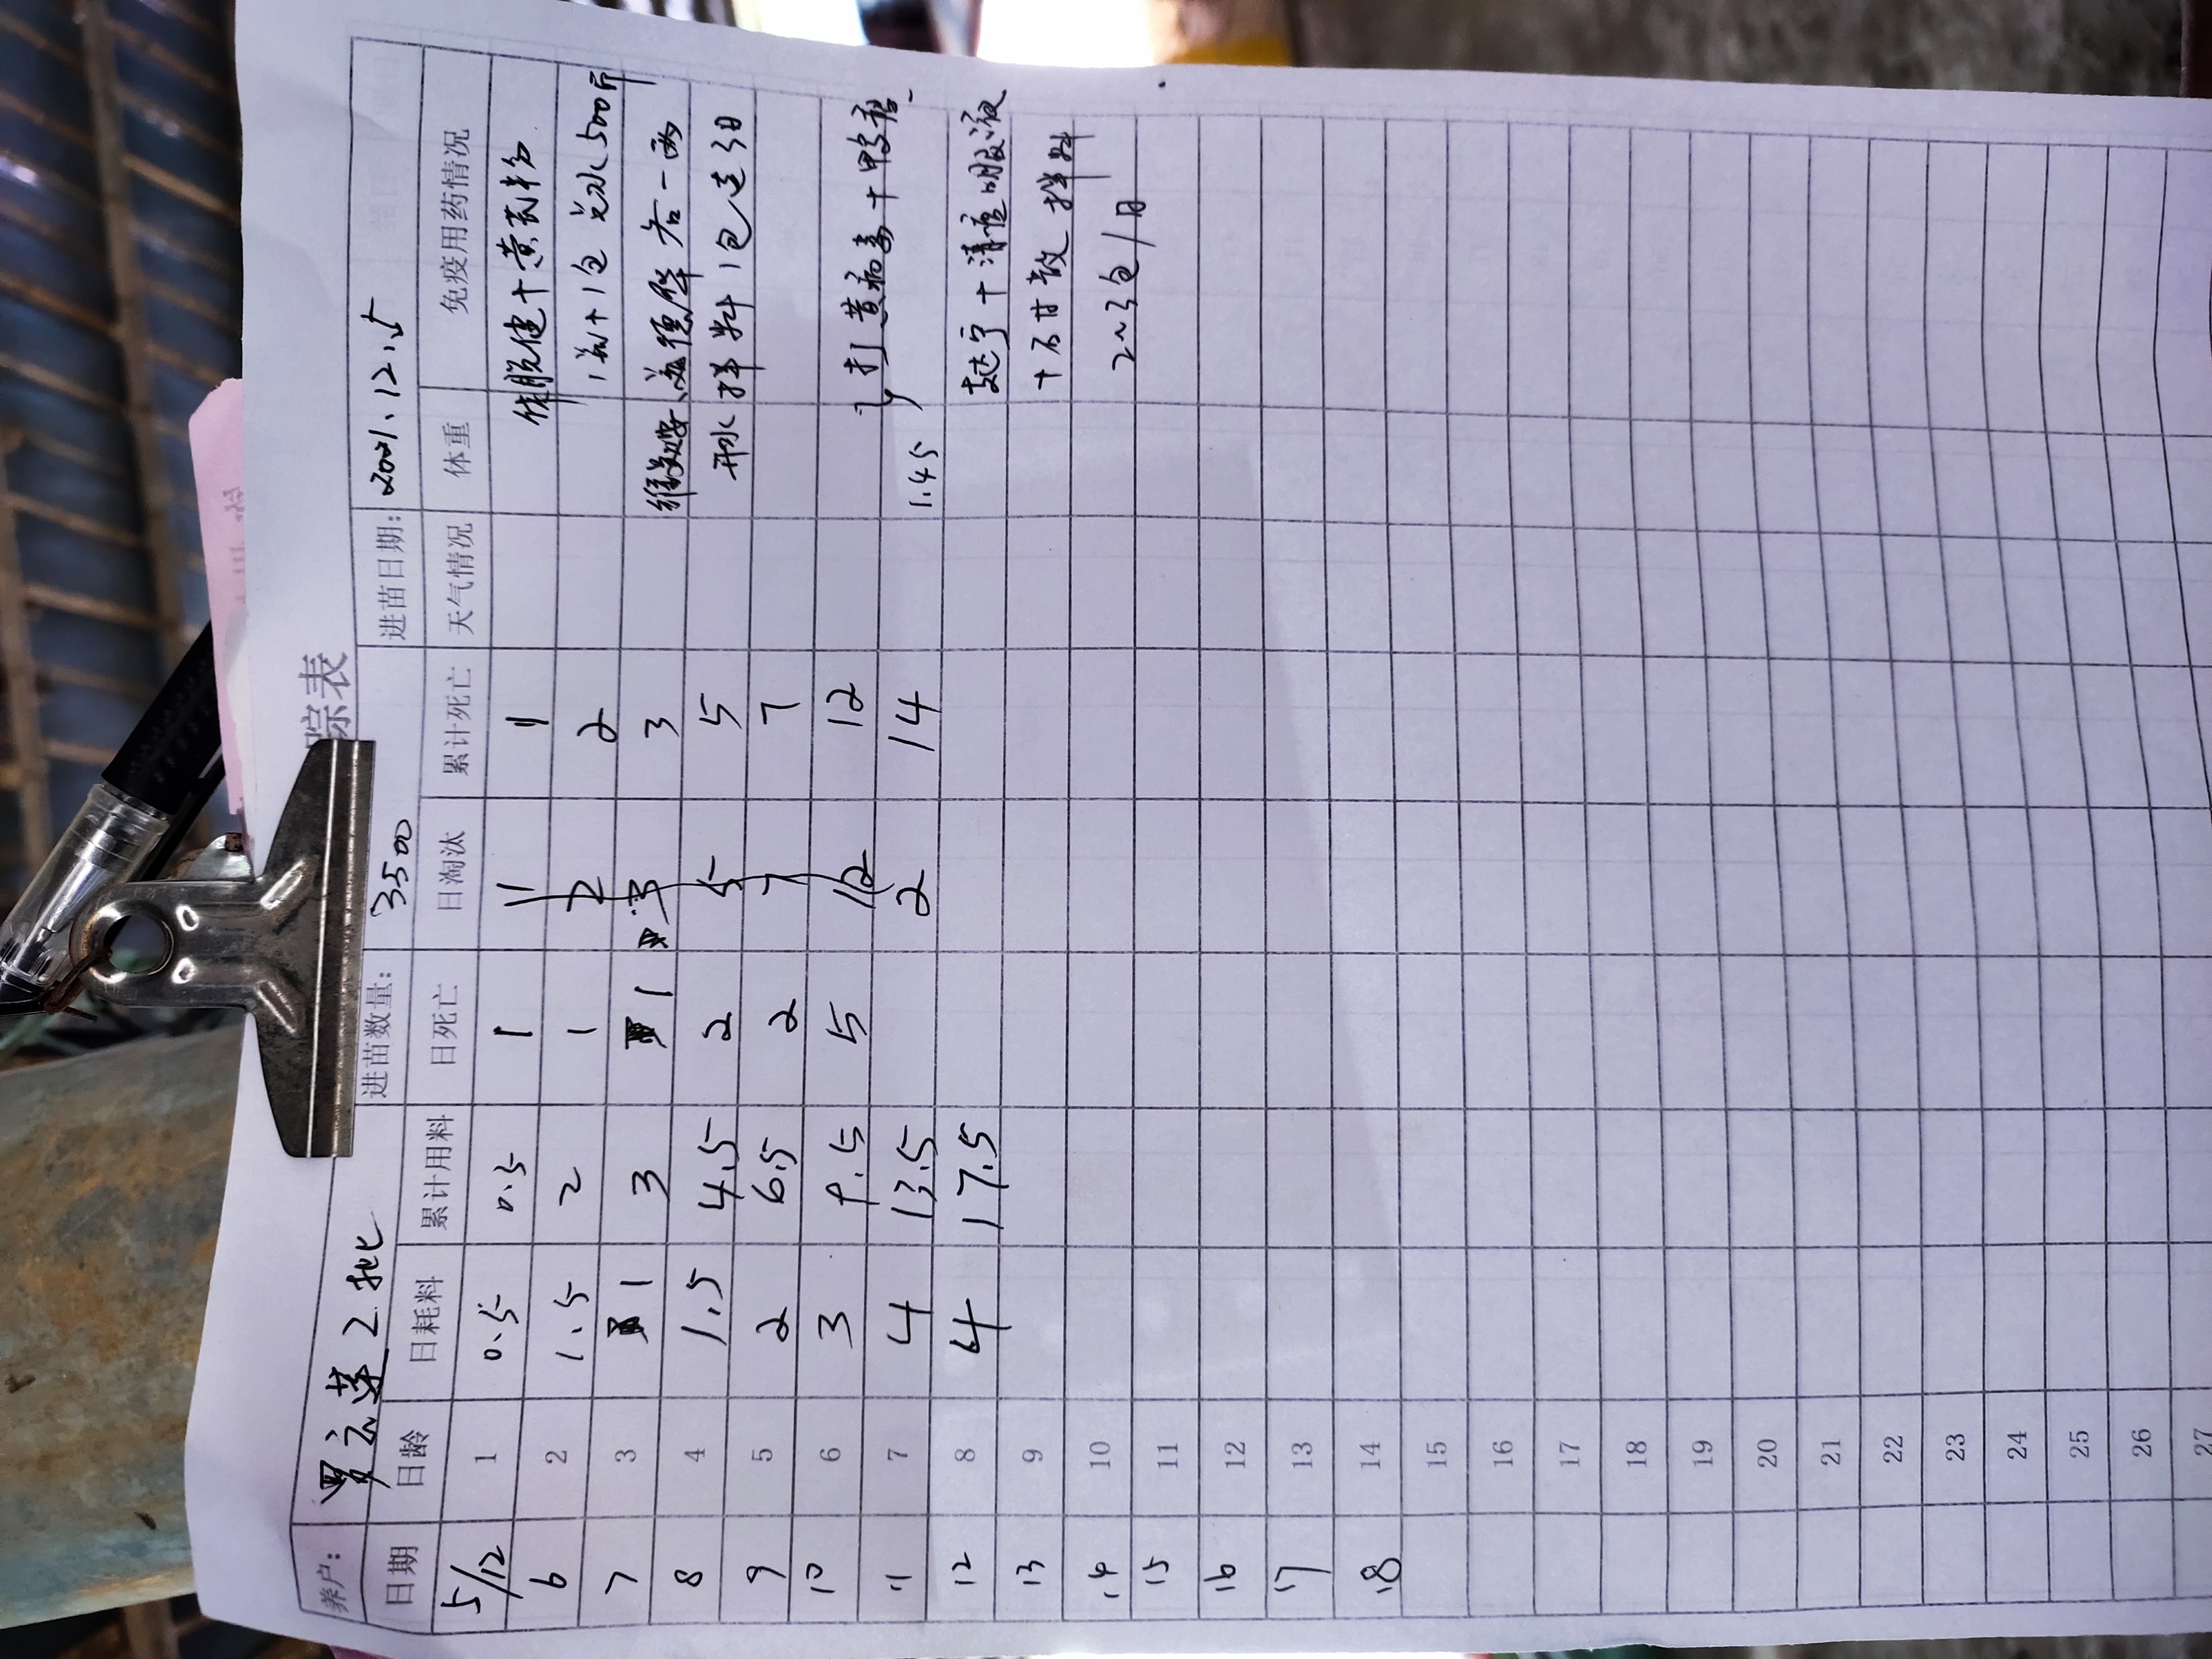 踪表
养户: 罗云莲2批 进苗数量: 3500 进苗日期: 2021.12.5
日期 日龄 日耗料 累计用料 日死亡 日淘汰 累计死亡 天气情况 体重 免疫用药情况
5/12 1 0.5 0.5 1 11 11 健+黄芪多
6 2 1.5 2 1 2 2 1包 兑水500斤
7 3 1 3 1 3 3 各一两
8 4 1.5 4.5 2 5 5 开水拌料1包连3日
9 5 2 6.5 2 7 7
10 6 3 9.5 5 12 12 打黄病毒+鸭瘟
11 7 4 13.5 2 14 1.45
12 8 4 17.5 +清瘟口服液
13 9 散拌料
14 10 2~3包/日
15 11
16 12
17 13
18 14
15
16
17
18
19
20
21
22
23
24
25
26
27